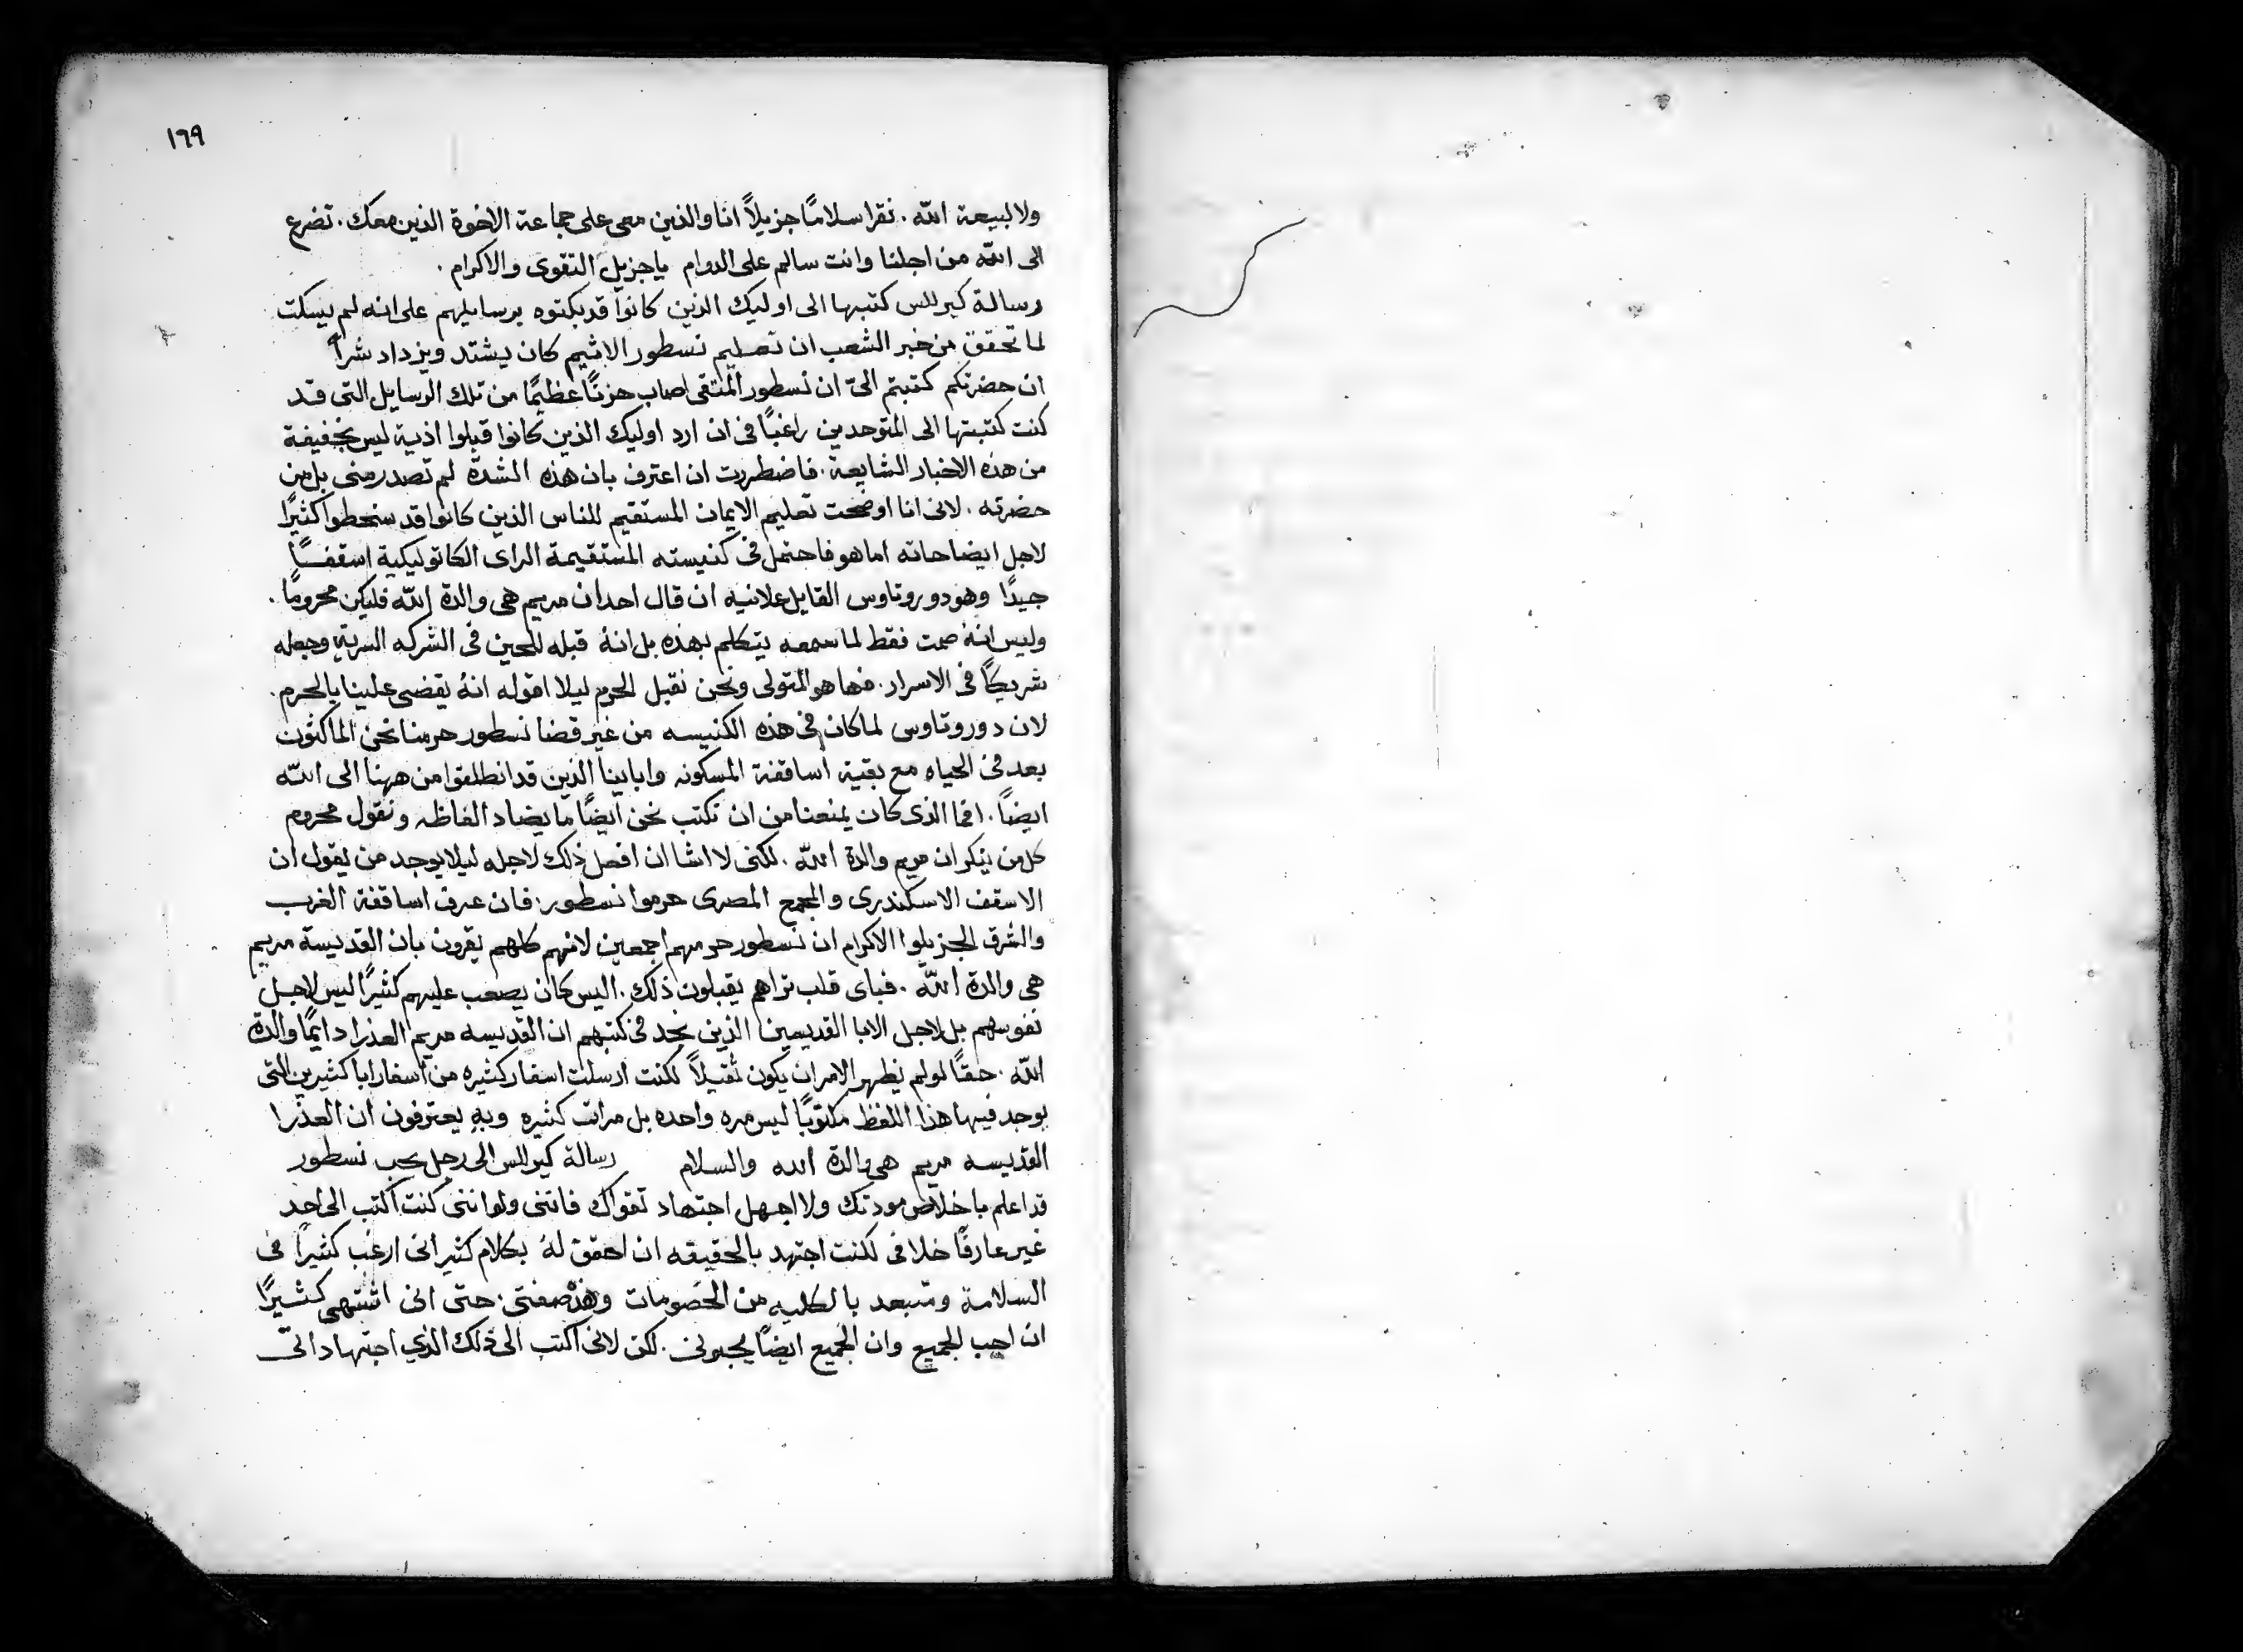 ١٦٩
ولا لبيعة الله . نقرا سلامًا جزيلاً انا والذين معى على جماعة الاخوة الذين معك . تضرع
الى الله من اجلنا وانت سالم على الدوام ياجزيل التقوى والاكرام .
رسالة كيرللس كتبها الى اوليك الذين كانوا قد بكتوه برسايلهم على انه لم يسكت
لما تحقق من خبر الشعب ان تعليم نسطور الاثيم كان يشتد ويزداد شراً
ان حضرتكم كتبتم الىّ ان نسطور المتقى اصاب حزنًا عظيمًا من تلك الرسايل التى قد
كنت كتبتها الى المتوحدين راغبًا فى ان ارد اوليك الذين كانوا قبلوا اذية ليس بخفيفة
من هذه الاخبار الشايعة . فاضطررت ان اعترف بان هذه الشدة لم تصدر منى بل من
حضرته . لانى انا اوضحت تعليم الايمان المستقيم للناس الذين كانوا قد سنحطوا كثيرًا
لاجل ايضاحاته اما هو فاحتمل فى كنيسته المستقيمة الراى الكاتوليكية اسقفًا
جيدًا وهو دوروتاوس القايل علانيه ان قال احد ان مريم هى والدة الله فليكن محرومًا .
وليس انهُ صمت فقط لما سمعه يتكلم بهذه بل انهُ قبله للحين فى الشركه السرية وجعله
شريكًا فى الاسرار . فها هو المتولى ونحن نقبل الحرم ليلا اقوله انهُ يقضى علينا بالحرم .
لان دوروتاوس لما كان فى هذه الكنيسه من غير قضا نسطور حرمنا نحن الماكثون
بعد فى الحياه مع بقية اساقفة المسكونه واباينا الذين قد انطلقوا من ههنا الى الله
ايضًا . افما الذى كان يمنعنا من ان نكتب نحن ايضًا ما يضاد الفاظه ونقول محروم
كل من ينكر ان مريم والدة الله . لكنى لا اشا ان افعل ذلك لاجله ليلا يوجد من يقول ان
الاسقف الاسكندرى والمجمع المصرى حرموا نسطور . فان عرف اساقفة الغرب
والشرق الجزيلوا الاكرام ان نسطور حرمهم اجمعين لانهم كلهم يقرون بان القديسة مريم
هى والدة الله . فباى قلب تراهم يقبلون ذلك . اليس كان يصعب عليهم كثيرًا ليس لاجل
نفوسهم بل لاجل الابا القديمين الذين نجد فى كتبهم ان القديسه مريم العذرا دايمًا والدة
الله . حقًا لو لم يظهر الامر ان يكون ثقيلاً لكنت ارسلت اسفار كثيره من اسفار ابا كثيرين التى
يوجد فيها هذا اللفظ مكتوبًا ليس مره واحده بل مرات كثيره وبهِ يعترفون ان العذرا
القديسه مريم هى والدة الله والسلام رسالة كيرللس الى رجل يحب نسطور
قد اعلم باخلاص مودتك ولا اجهل اجتهاد تقواك فاننى ولو اننى كنت اكتب الى احد
غير عارفًا خلافى لكنت اجتهد بالحقيقه ان احقق لهُ بكلام كثير انى ارغب كثيراً فى
السلامة ومتبعد بالكليه من الخصومات وهذه صفتى . حتى انى اشتهى كثيرًا
ان احب الجميع وان الجميع ايضًا يحبونى . لكن لانى اكتب الى ذلك الذي اجتهاداتى